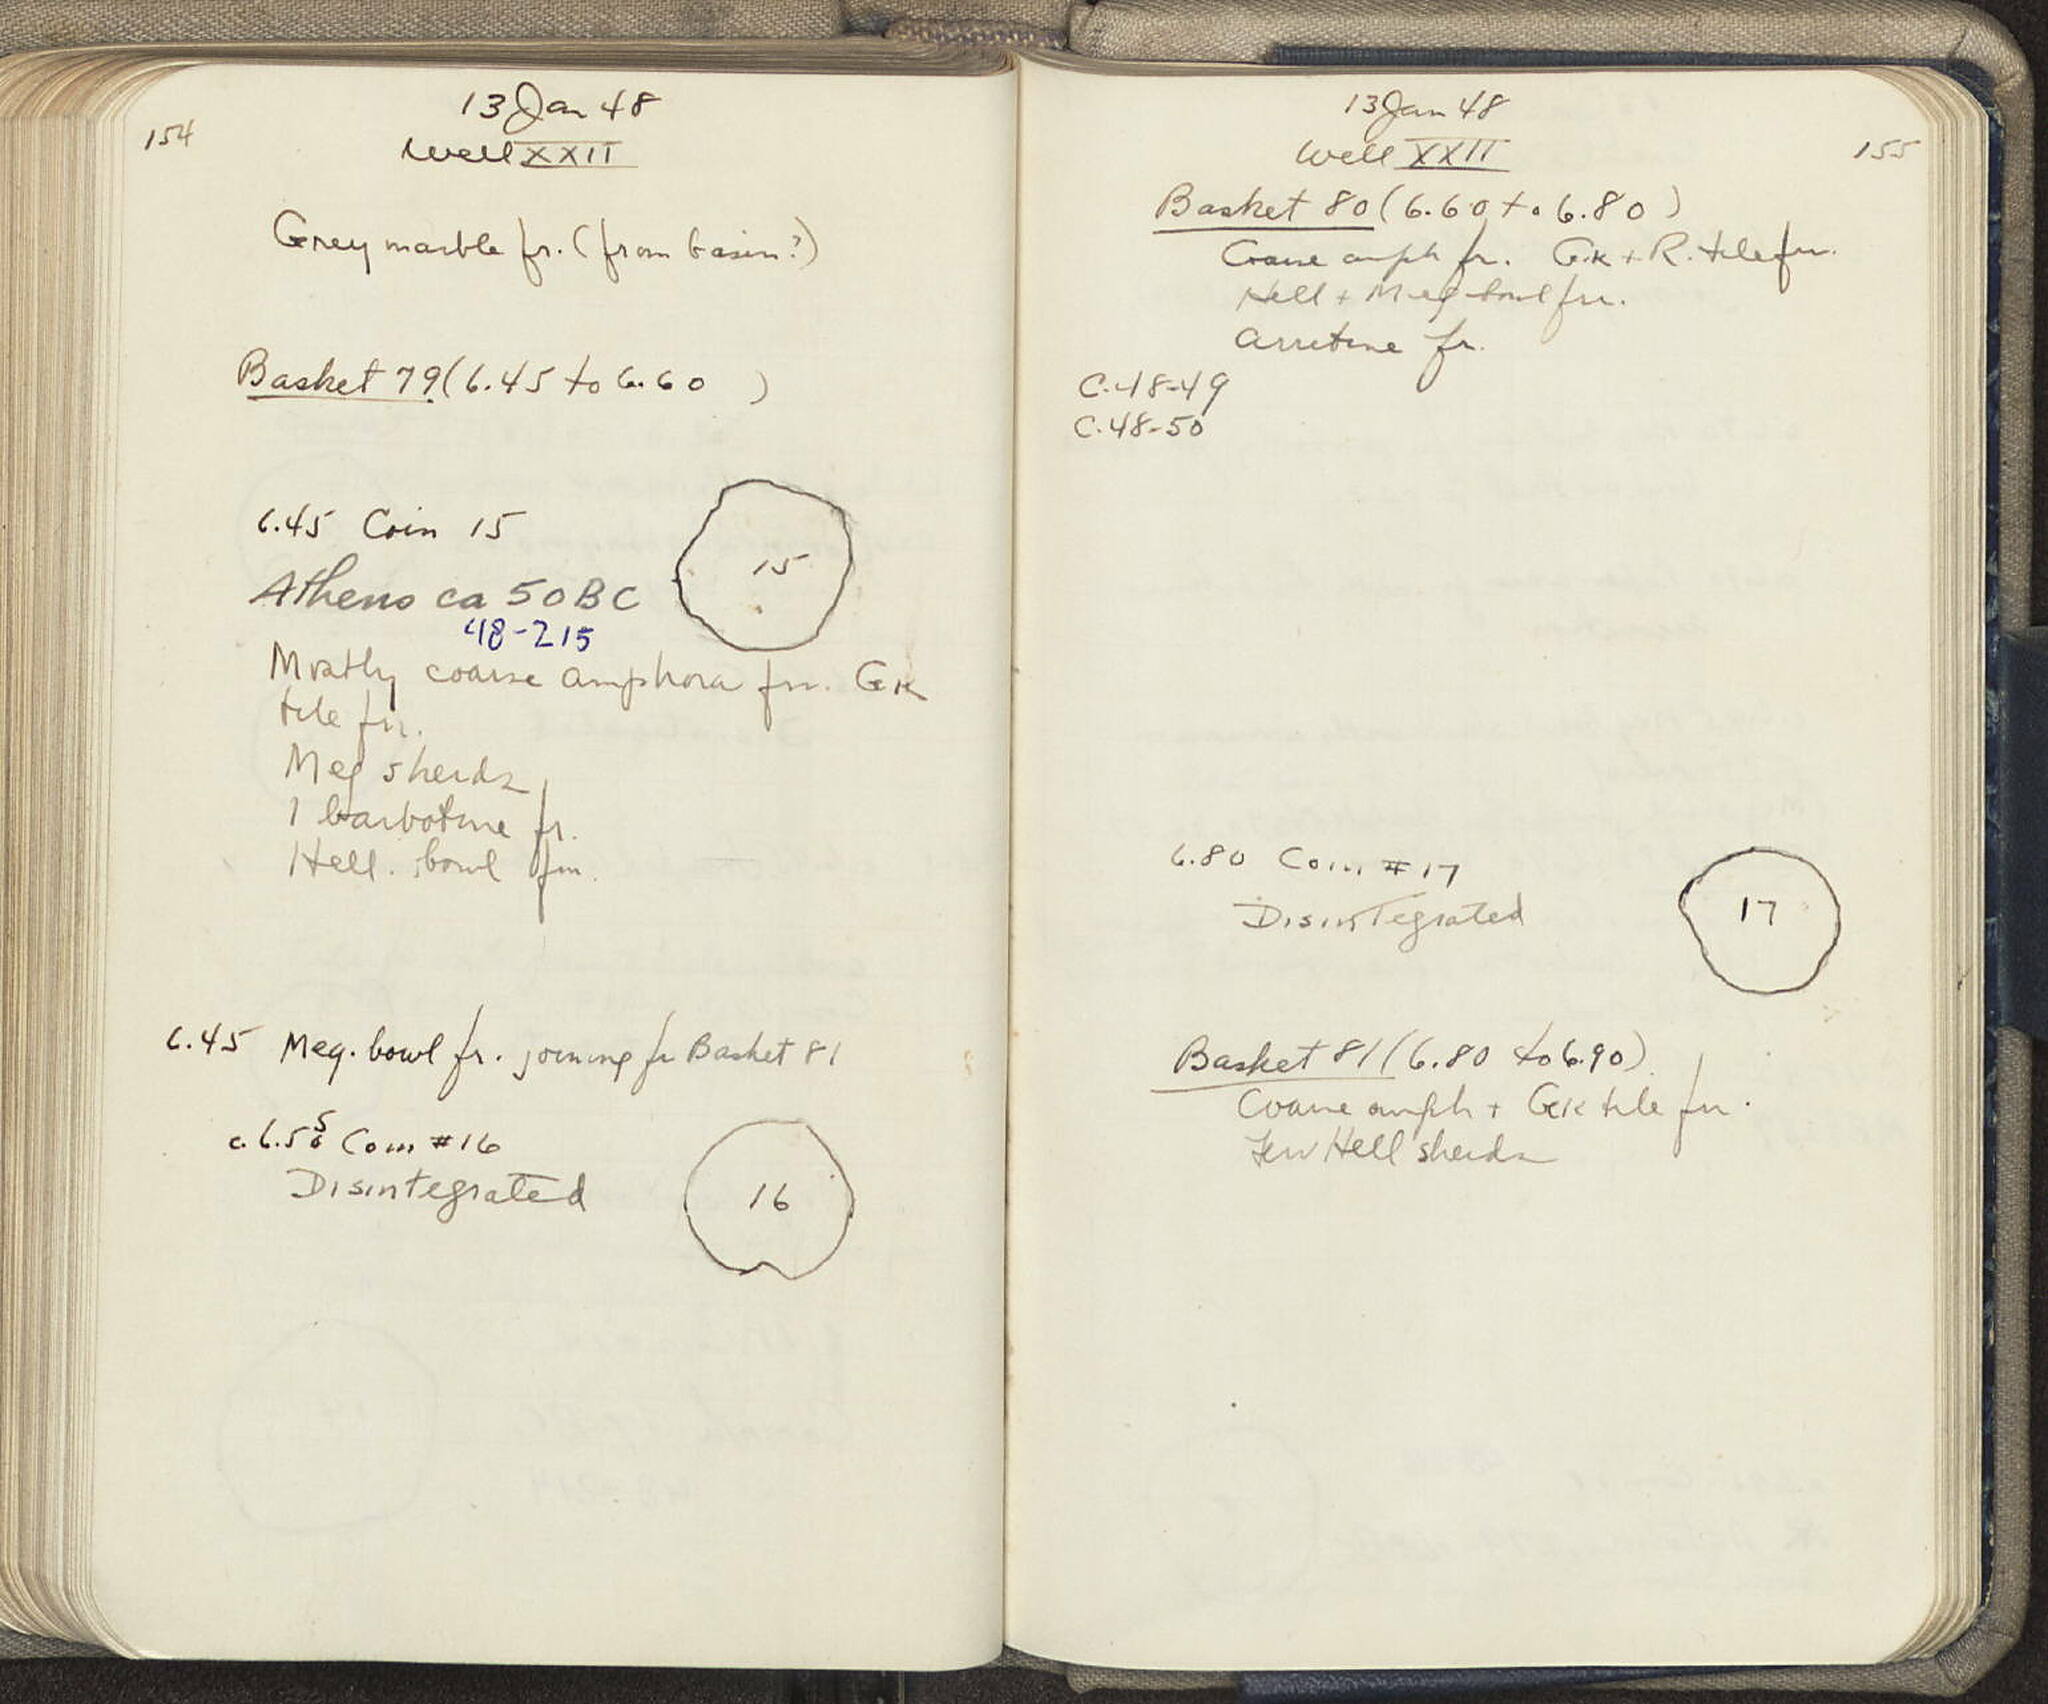 154
13 Jan 48
Well XXII
Grey marble fr. (from basin?)
Basket 79 (6.45 to 6.60 )
6.45 Coin 15
15
Athens ca 50 BC
48-215
Mostly coarse amphora frr. Gk
tile frr.
Meg sherds
1 barbotine fr.
Hell. bowl frr.
6.45 Meg. bowl fr. joining fr Basket 81
c. 6.55 Coin #16
Disintegrated
16
155
13 Jan 48
Well XXII
Basket 80 (6.60 to 6.80)
Coarse amph fr. Gk + R. tile frr.
Hell + Meg bowl frr.
Arretine fr.
C.48-49
C.48-50
6.80 Coin #17
Disintegrated
17
Basket 81 (6.80 to 6.90)
Coarse amph + Gk tile frr.
Few Hell sherds